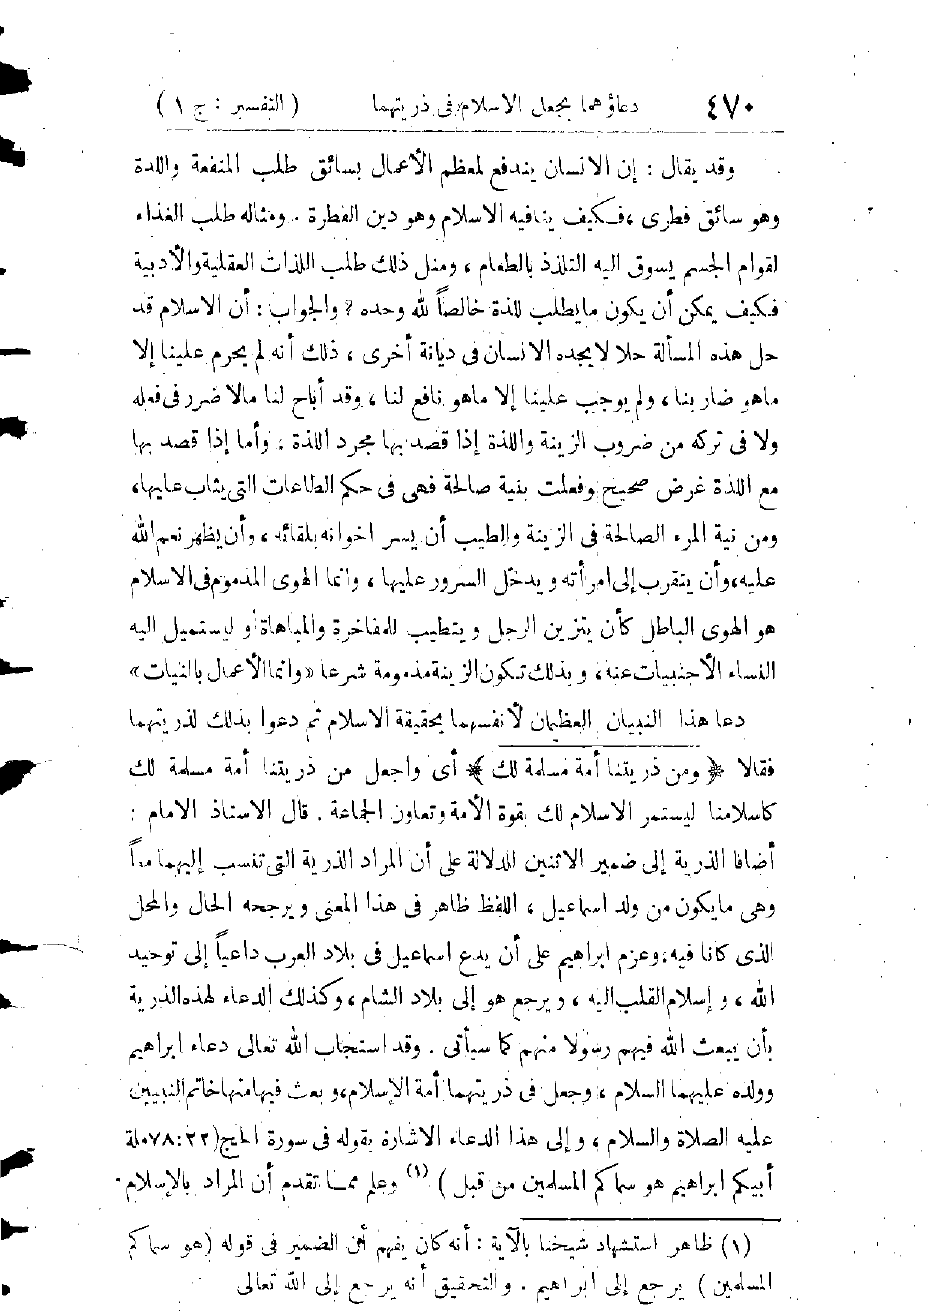 ٤٧٠ دعاؤهما بجعل الاسلام فى ذريتهما (التفسير : ج ١ )
وقد يقال : إن الانسان يندفع لمعظم الأعمال بسائق طلب المنفعة واللذة
وهو سائق فطرى ، فكيف ينافيه الاسلام وهو دين الفطرة . ومثاله طلب الغذاء
لقوام الجسم يسوق اليه التلذذ بالطعام ، ومثل ذلك طلب اللذات العقلية والأدبية
فكيف يمكن أن يكون ما يطلب للذة خالصاً لله وحده ؟ والجواب : أن الاسلام قد
حل هذه المسألة حلا لا يجده الانسان فى ديانة أخرى ، ذلك أنه لم يحرم علينا إلا
ماهو ضار بنا ، ولم يوجب علينا إلا ماهو نافع لنا ، وقد أباح لنا مالا ضرر فى فعله
ولا فى تركه من ضروب الزينة واللذة إذا قصد بها مجرد اللذة ، وأما إذا قصد بها
مع اللذة غرض صحيح وفعلت بنية صالحة فهى فى حكم الطاعات التى يثاب عليها،
ومن نية المرء الصالحة فى الزينة والطيب أن يسر اخوانه بلقائه ، وأن يظهر نعم الله
عليه، وأن يتقرب إلى امرأته ويدخل السرور عليها ، وانما الهوى المذموم فى الاسلام
هو الهوى الباطل كأن يتزين الرجل ويتطيب للمفاخرة والمباهاة أو ليستميل اليه
النساء الأجنبيات عنه، وبذلك تكون الزينة مذمومة شرعا «وانما الأعمال بالنيات»
دعا هذا النبيان العظيمان لأنفسهما بحقيقة الاسلام ثم دعوا بذلك لذريتهما
فقالا ﴿ ومن ذريتنا أمة مسلمة لك ﴾ أى واجعل من ذريتنا أمة مسلمة لك
كاسلامنا ليستمر الاسلام لك بقوة الأمة وتعاون الجماعة . قال الاستاذ الامام :
أضافا الذرية إلى ضمير الاثنين للدلالة على أن المراد الذرية التى تنسب إليهما معاً
وهى ما يكون من ولد اسماعيل ، اللفظ ظاهر فى هذا المعنى ويرجحه الحال والمحل
الذى كانا فيه، وعزم ابراهيم على أن يدع اسماعيل فى بلاد العرب داعياً إلى توحيد
الله ، وإسلام القلب اليه ، ويرجع هو إلى بلاد الشام ، وكذلك الدعاء لهذه الذرية
بأن يبعث الله فيهم رسولا منهم كما سيأتى . وقد استجاب الله تعالى دعاء ابراهيم
وولده عليهما السلام ، وجعل فى ذريتهما أمة الإسلام، وبعث فيها منها خاتم النبيين
عليه الصلاة والسلام ، وإلى هذا الدعاء الاشارة بقوله فى سورة الحج (٧٨:٢٢ ملة
أبيكم ابراهيم هو سماكم المسلمين من قبل ) (١) وعلم مما تقدم أن المراد بالإسلام
(١) ظاهر استشهاد شيخنا بالآية : أنه كان يفهم أن الضمير فى قوله (هو سماكم
المسلمين ) يرجع إلى ابراهيم . والتحقيق أنه يرجع إلى الله تعالى